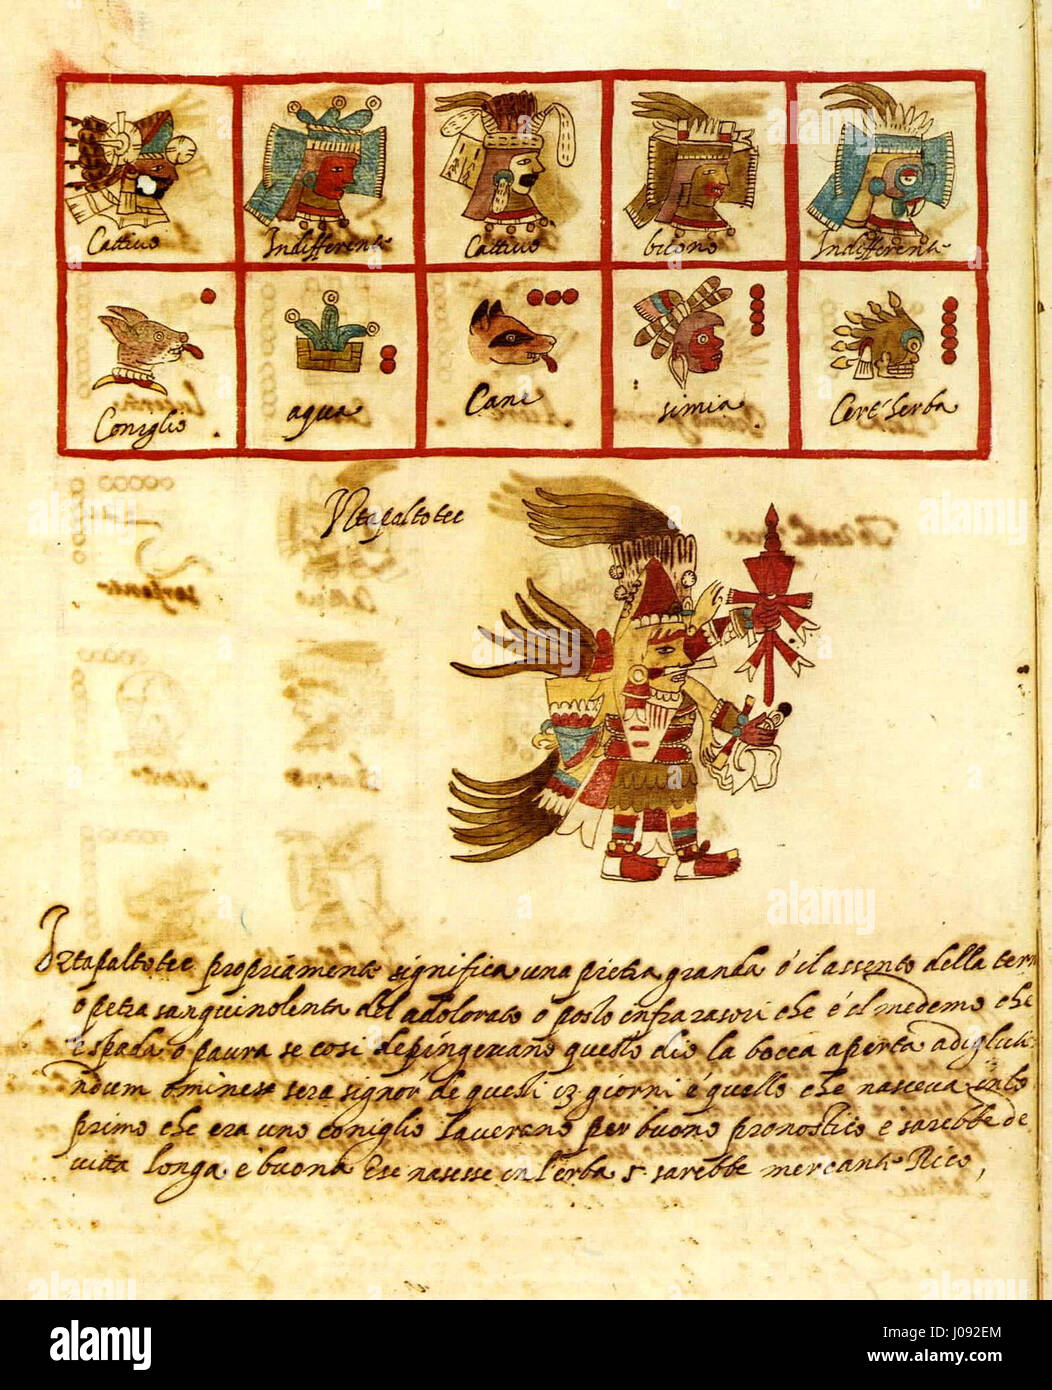 Cattiuo Indifferente Cattiuo buono Indifferente
Coniglio agua Cane simia Certa herba
Iztapaltotec
Iztapaltotec propriamente significa una pietra granda o il assento della terra
o petra sanguinolenta del adolorato o posto infra rasori che è il medemo che
spada o paura se cosi depingevano questo dio la bocca aperta a
homines sera signor de questi 13 giorni è quello che nasceua
primo che era uno coniglio haverano per buono pronostico e sarebbe de
vitta longa e buona E se nasesse in l'erba 5 sarebbe mercante Rico,
alamy
J092EM
www.alamy.com